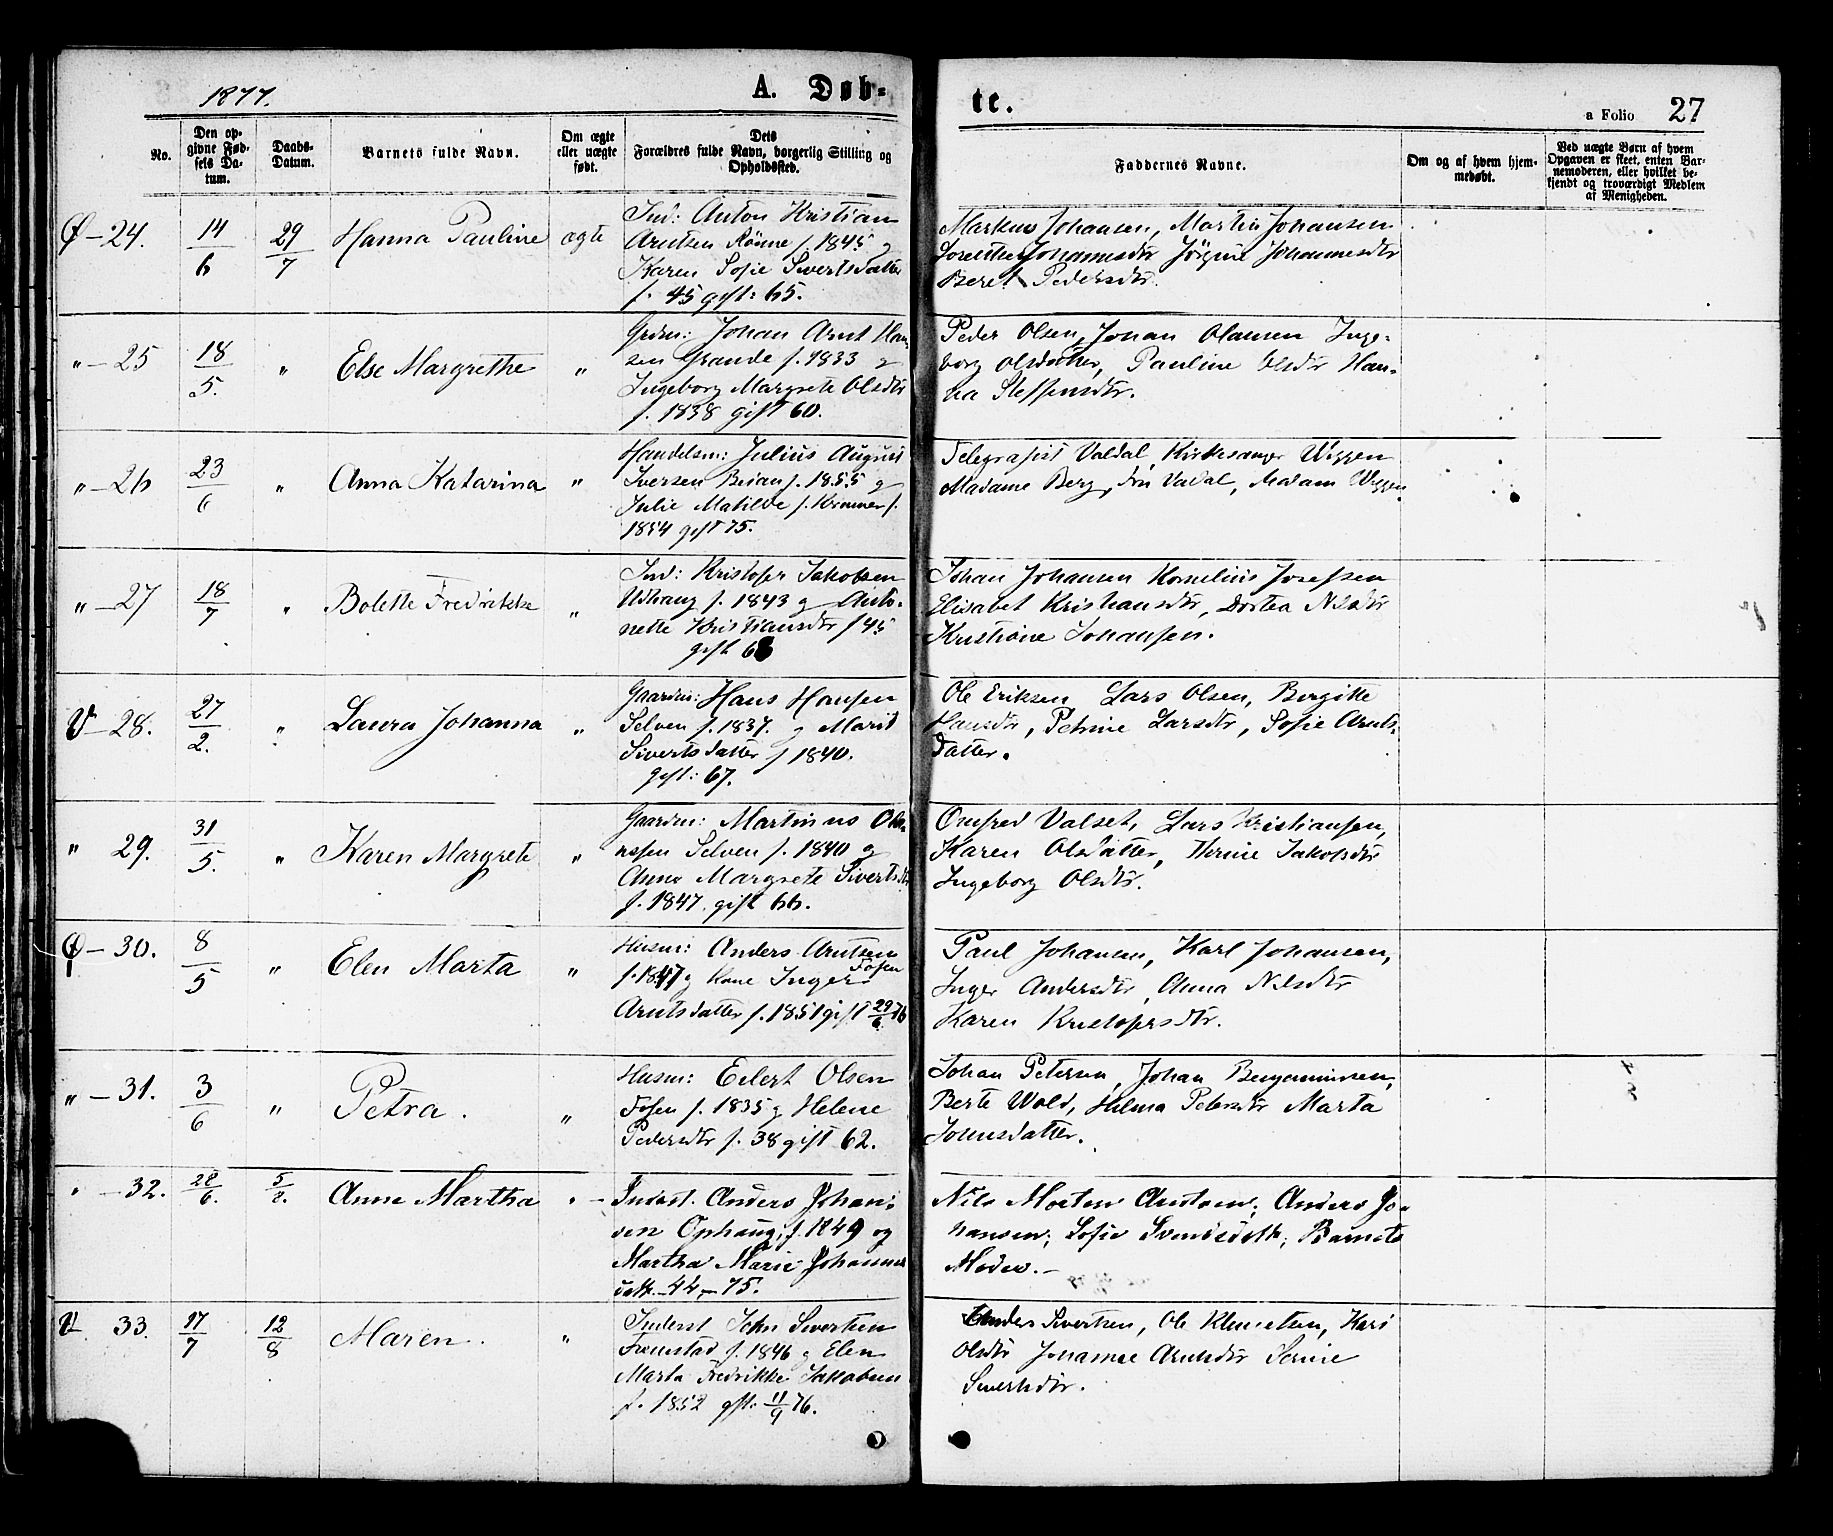 1877.
A. Døb-
te.
a Folio 27
No.
Den op-
givne Fød-
sels Da-
tum.
Daabs-
Datum.
Barnets fulde Navn.
Om ægte
eller uægte
født.
Dets
Forældres fulde Navn, borgerlig Stilling og
Opholdssted.
Faddernes Navne.
Om og af hvem hjem-
medøbt.
Ved uægte Børn af hvem
Opgaven er skeet, enten Bar-
nemoderen, eller hvilket be-
kjendt og troværdigt Medlem
af Menigheden.
Ø - 24.
14/6
29/7
Hanna Pauline
ægte
Ind: Anton Kristian
Arntsen Rönne f. 1845 g
Karen Sofie Sivertsdatter
f. 45 gift: 65.
Markus Johansen, Martin Johansen
Johannesdtr Jörgine Johannesdtr
Beret Pedersdtr.
" - 25
18/5.
"
Else Margrethe
"
Grdm: Johan Arnt Han-
sen Grande f. 1833 g
Ingeborg Margrete Olsdtr
f. 1838 gift 60.
Peder Olsen, Johan Olausen Inge-
borg Olsdatter, Pauline Olsdtr Han-
na Steffensdtr.
" - 26
23/6
"
Anna Katarina
"
Handelsm: Julius August
Iversen Beian f. 1855 g
Julie Matilde f. Kramer f.
1854 gift 75.
Telegrafist Valdal, Kirkesanger Wiggen
Madame Berg, Frk Valdal, Madam Wiggen
" - 27
18/7
"
Bolette Fredrikke
"
Ind: Kristofer Jakobsen
Udhaug f. 1843 g Anto-
nette Kristiansdtr f 45
gift 68
Johan Johansen Kornelius Josefsen
Elisabet Kristiansdtr, Dortea Nilsdtr
Kristiane Johansen.
V - 28.
27/2.
"
Laura Johanna
"
Gaardm: Hans Hansen
Selven f. 1837. g Marit
Sivertsdatter f 1840.
gift: 67.
Ole Eriksen, Lars Olsen, Bergitte
Hansdtr, Petrine Larsdtr, Sofie Arnts-
datter.
" 29.
31/5.
"
Karen Margrete
"
Gaardm: Martinus Ola-
ussen Selven f. 1840 g
Anna Margrete Sivertsdtr
f. 1847 gift 66.
Onfred Valset, Lars Kristiansen,
Karen Olsdatter, Jakobsdtr
Ingeborg Olsdtr.
Ø - 30.
8/5
"
Elen Marta
"
Husm: Anders Arntsen
Fosen
f. 1847 g Kone Inger
Arntsdatter f. 1851 gift 29/6 76
Paul Johansen, Karl Johansen,
Inger Andersdtr, Anna Nilsdtr
Karen Kristofersdtr.
" - 31.
3/6
"
Petra.
"
Husm: Eilert Olsen
Fosen f. 1835 g Helene
Pedersdtr f. 38 gift 62.
Johan Petersen, Johan Benjaminsen,
Berte Wold, Hilma Petersdtr Marta
Johnsdatter.
" - 32.
28/6.
5/8.
Anne Martha
" -
Inderst. Anders Johan-
sen Ophaug, f. 1849 og
Martha Marie Johannes
datt. - 44, - 75.
Nils Morten Arntsen; Anders Jo-
hansen; Sofie Svendsdatt; Barnets
Moder. -
V 33.
17/7
12/8
Maren.
"
Inderst John Sivertsen
f. 1846 g Elen
Marta Fredrikke Jakobsen
f. 1852 gift. 11/9 76.
Anders Sivertsen, Ole Klemetsen, Kari
Olsdtr Johanna Arntsdtr Serine
Sivertsdtr.